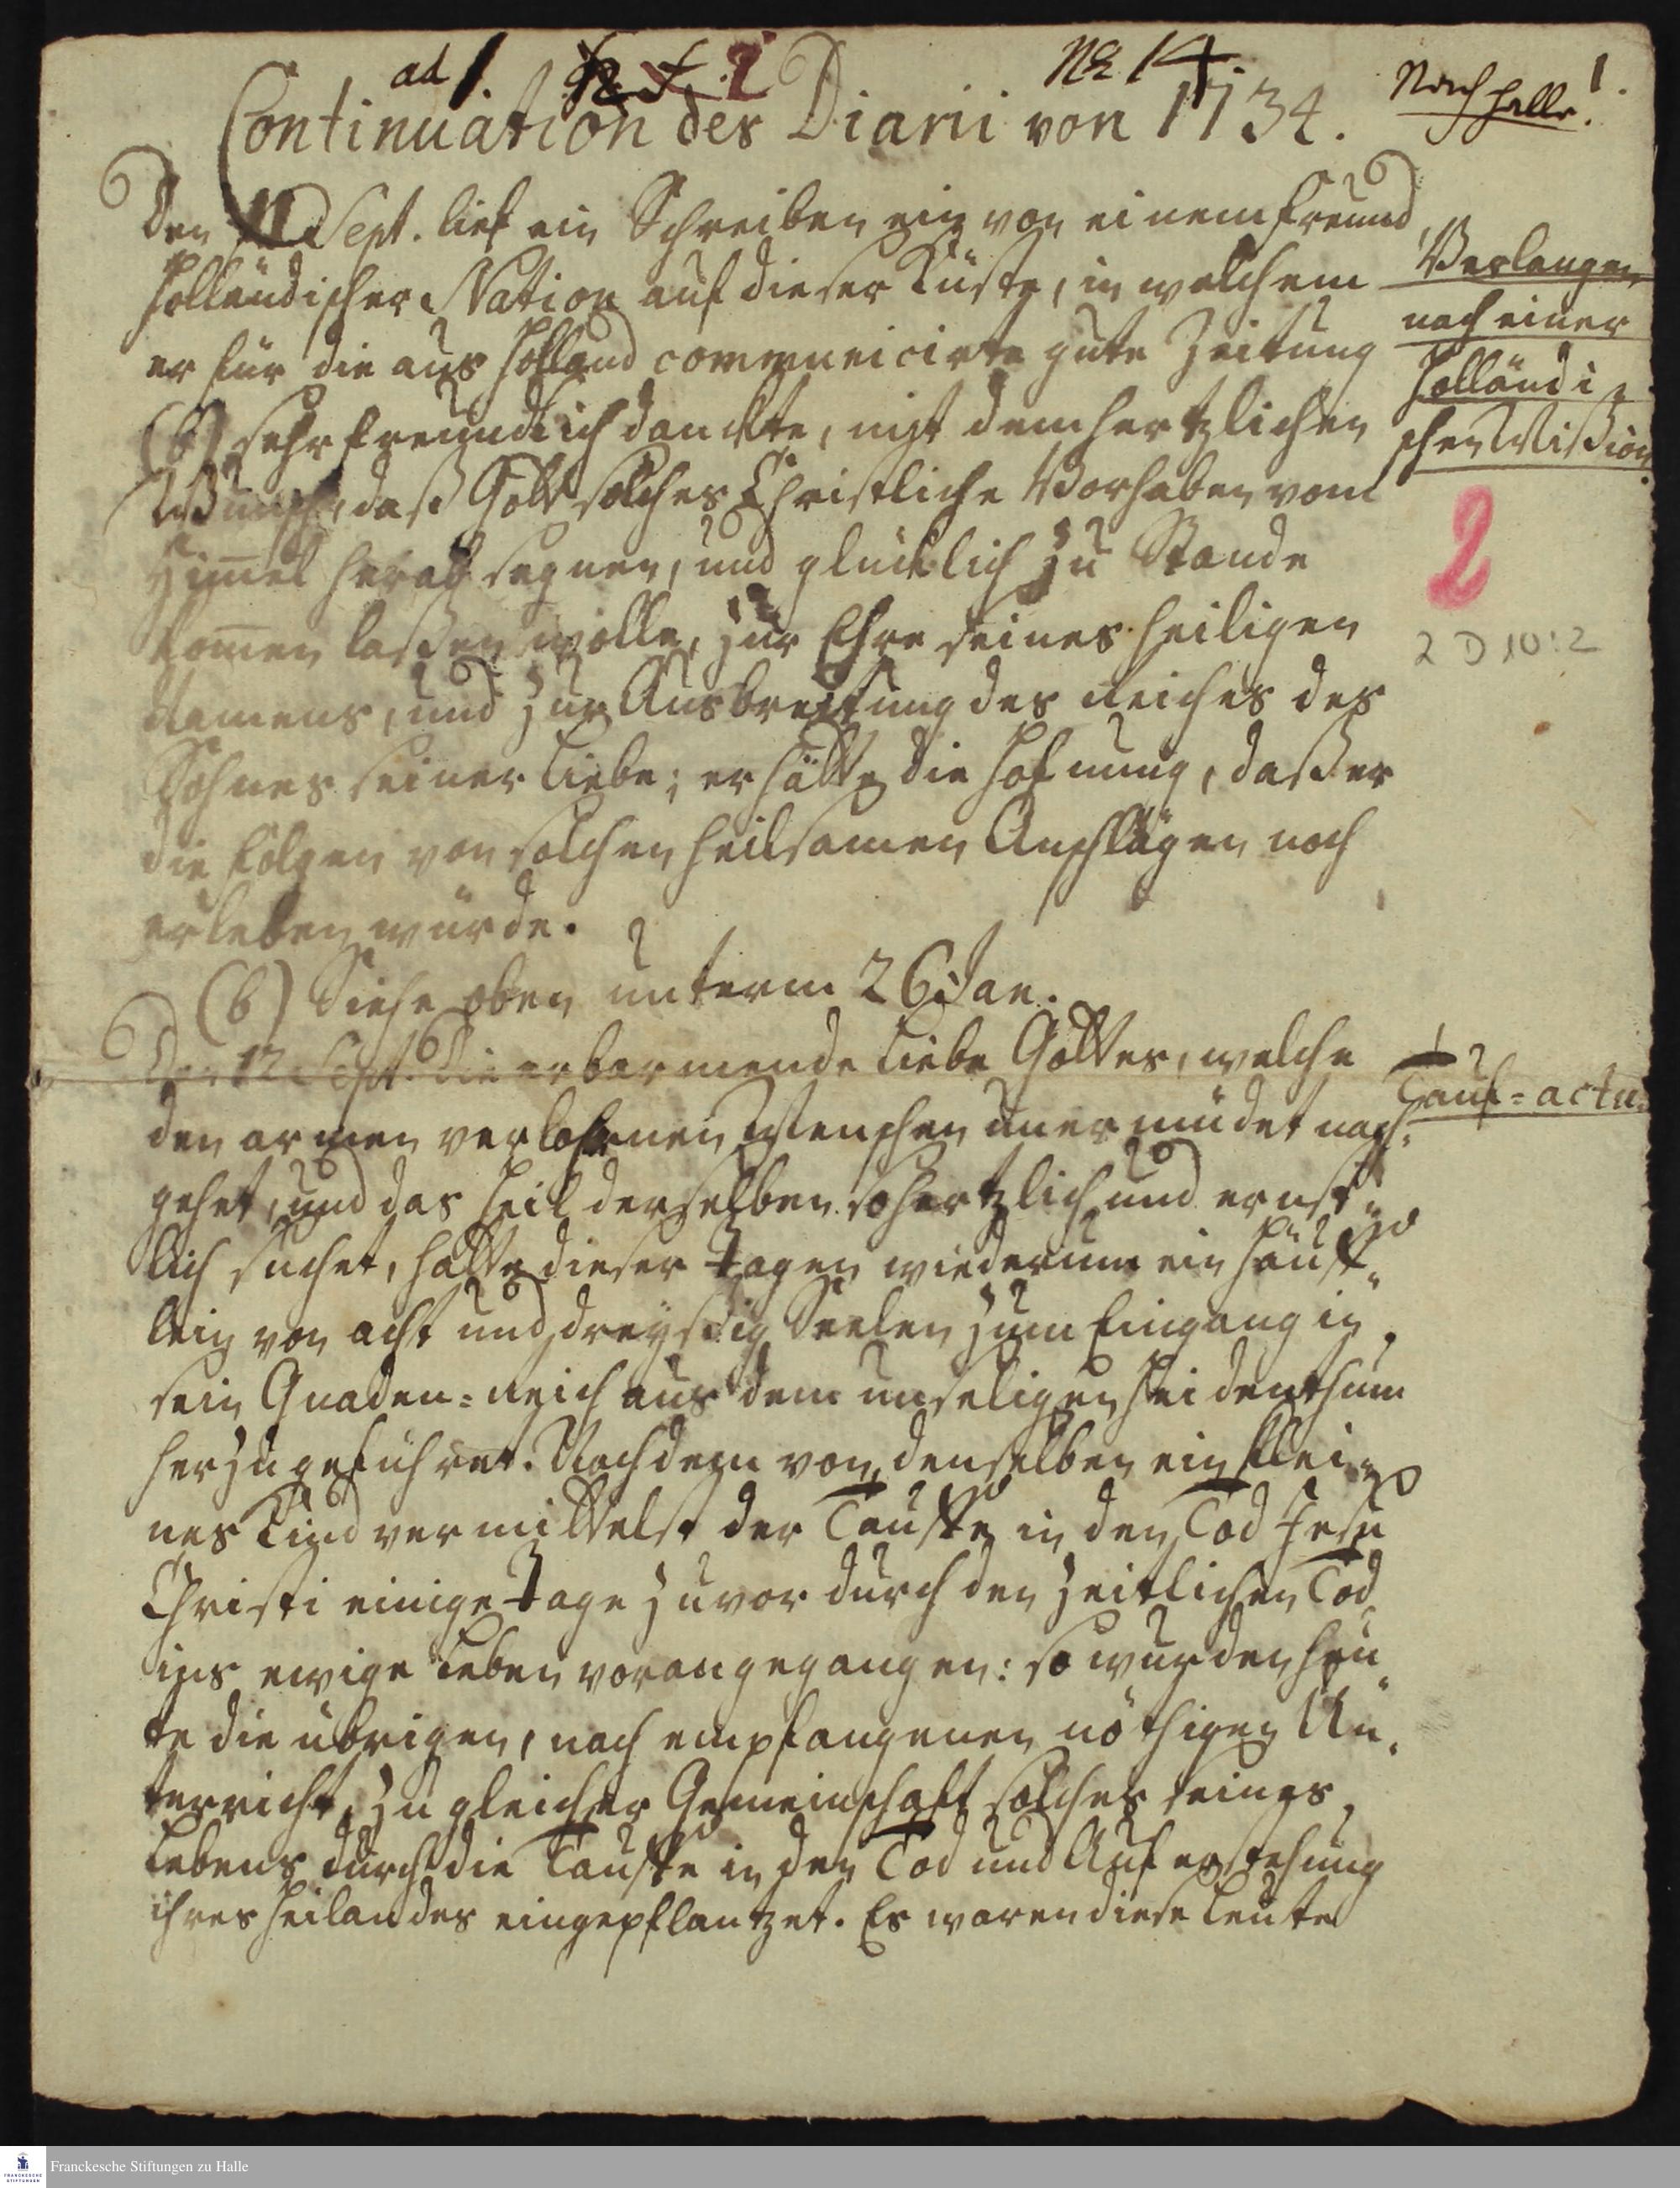 ad 1. 2 No. 14. Nach Halle. 1.
Continuation des Diarii von 1734.
Den 11 Sept. lief ein Schreiben ein von einem Freund
Holländischer Nation auf dieser Küste, in welchem
er für die aus Holland communicirte gute Zeitung
(b) sehr freundlich danckte, mit dem hertzlichen
Wunsch, daß Gott solches Christliche Vorhaben vom
Him̅el herab segnen, und glücklich zu Stande
kom̅en laßen wolle, zur Ehre seines heiligen
Namens, und zur Ausbreitung des Reiches des
Sohnes seiner Liebe; er hätte die Hofnung, daß er
die Folgen von solchen heilsamen Anschlägen noch
erleben würde.
(b) Siehe oben unterm 26 Jan.
Verlangen
nach einer
Holländi
schen Mißion.
2
2 D 10:2
Den 12 Sept. Die erbarmende Liebe Gottes, welche
den armen verlohrnen Menschen unermüdet nach-
gehet, und das Heil derselben so hertzlich und ernst-
lich suchet, hatte dieser Tagen wiederum ein Häuff-
lein von acht und dreyßig Seelen zum Eingang in
sein Gnaden-Reich aus dem unseligen Heidenthum
herzugeführet. Nachdem von denselben ein klei-
nes Kind vermittelst der Tauffe in den Tod Jesu
Christi einige Tage zuvor durch den zeitlichen Tod
ins ewige Leben vorangegangen: so wurden heu-
te die übrigen, nach empfangenen nöthigen Un-
terricht, zu gleicher Gemeinschaft solches seines
Lebens durch die Tauffe in den Tod und Auferstehung
ihres Heilandes eingepflantzet. Es waren diese Leute
Tauf-actu
Franckesche Stiftungen zu Halle